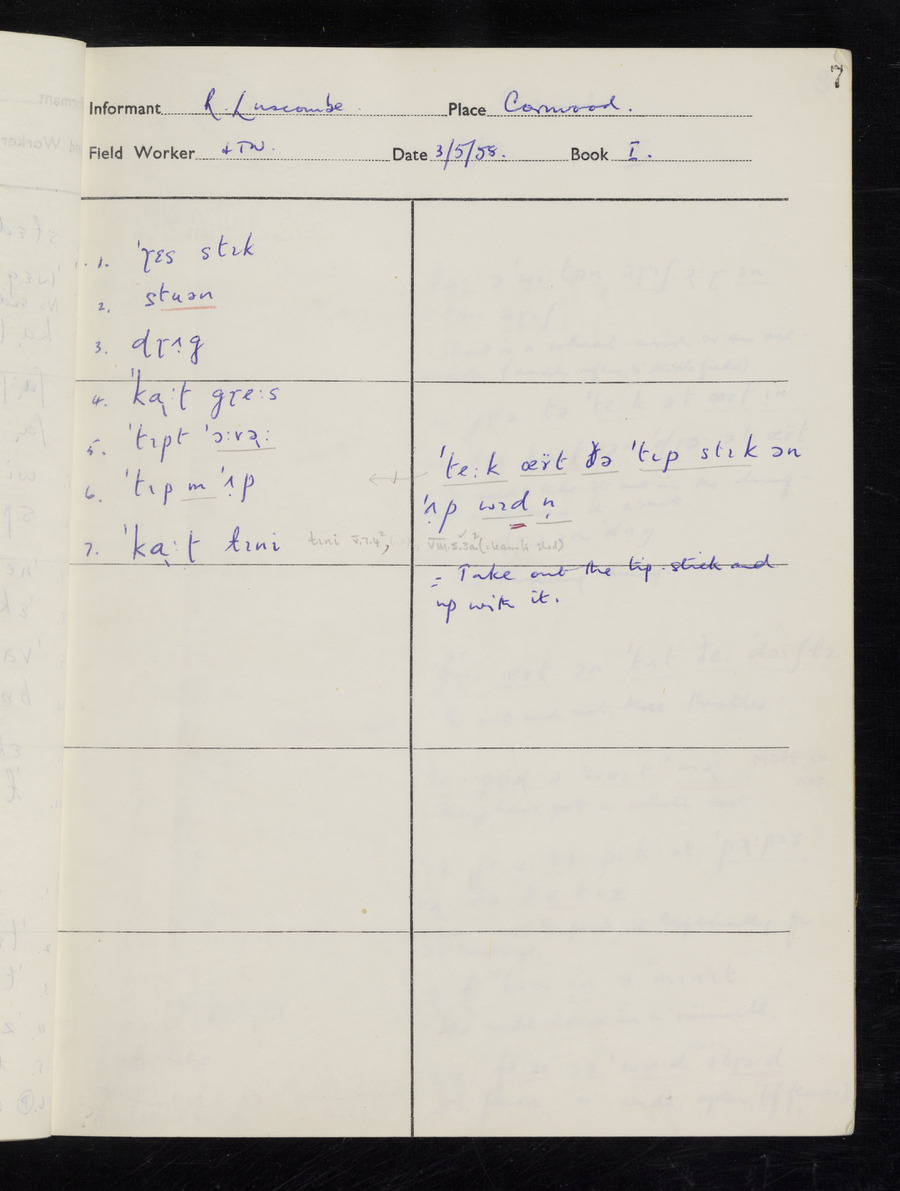 7
Informant R. Luscombe Place Cornwood.
Field Worker + TN. Date 3/5/58. Book I.
1. ˈɽɛs stɪk
2. stuən
3. dɽʌ̣g
4. ˈkạːt gɽeːs
5. ˈtɪpt ˈɔːvəː
6. ˈtɪp m ˈʌ̣p
7. ˈkạːt lɪni lɪni V.7.4², VIII.5.3a²(=wank shed)
ˈteːk æʏt ðə ˈtɪp stɪk ən
ˈʌ̣p wɪd n̩
= Take out the tip-stick and
up with it.